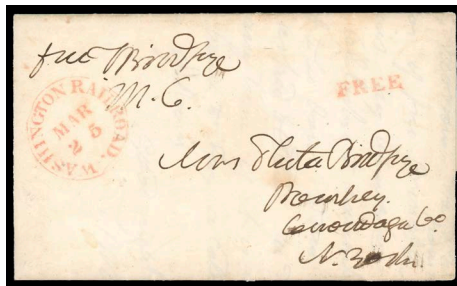 free V Birdseye
M.C.
WASHINGTON RAILROAD.
MAR
25
FREE
Mrs Electa Birdseye
Pompey.
Onondaga Co.
N. York